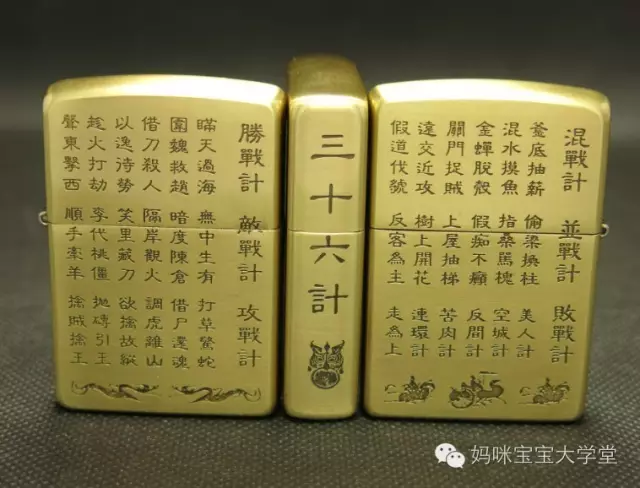 勝戰計
瞞天過海
圍魏救趙
借刀殺人
以逸待勢
趁火打劫
聲東擊西
敵戰計
無中生有
暗度陳倉
隔岸觀火
笑里藏刀
李代桃僵
順手牽羊
攻戰計
打草驚蛇
借尸還魂
調虎離山
欲擒故縱
拋磚引玉
擒賊擒王
三十六計
混戰計
釜底抽薪
混水摸魚
金蟬脫殼
關門捉賊
遠交近攻
假道代號
並戰計
偷梁換柱
指桑罵槐
假痴不癲
上屋抽梯
樹上開花
反客為主
敗戰計
美人計
空城計
反間計
苦肉計
連環計
走為上
妈咪宝宝大学堂